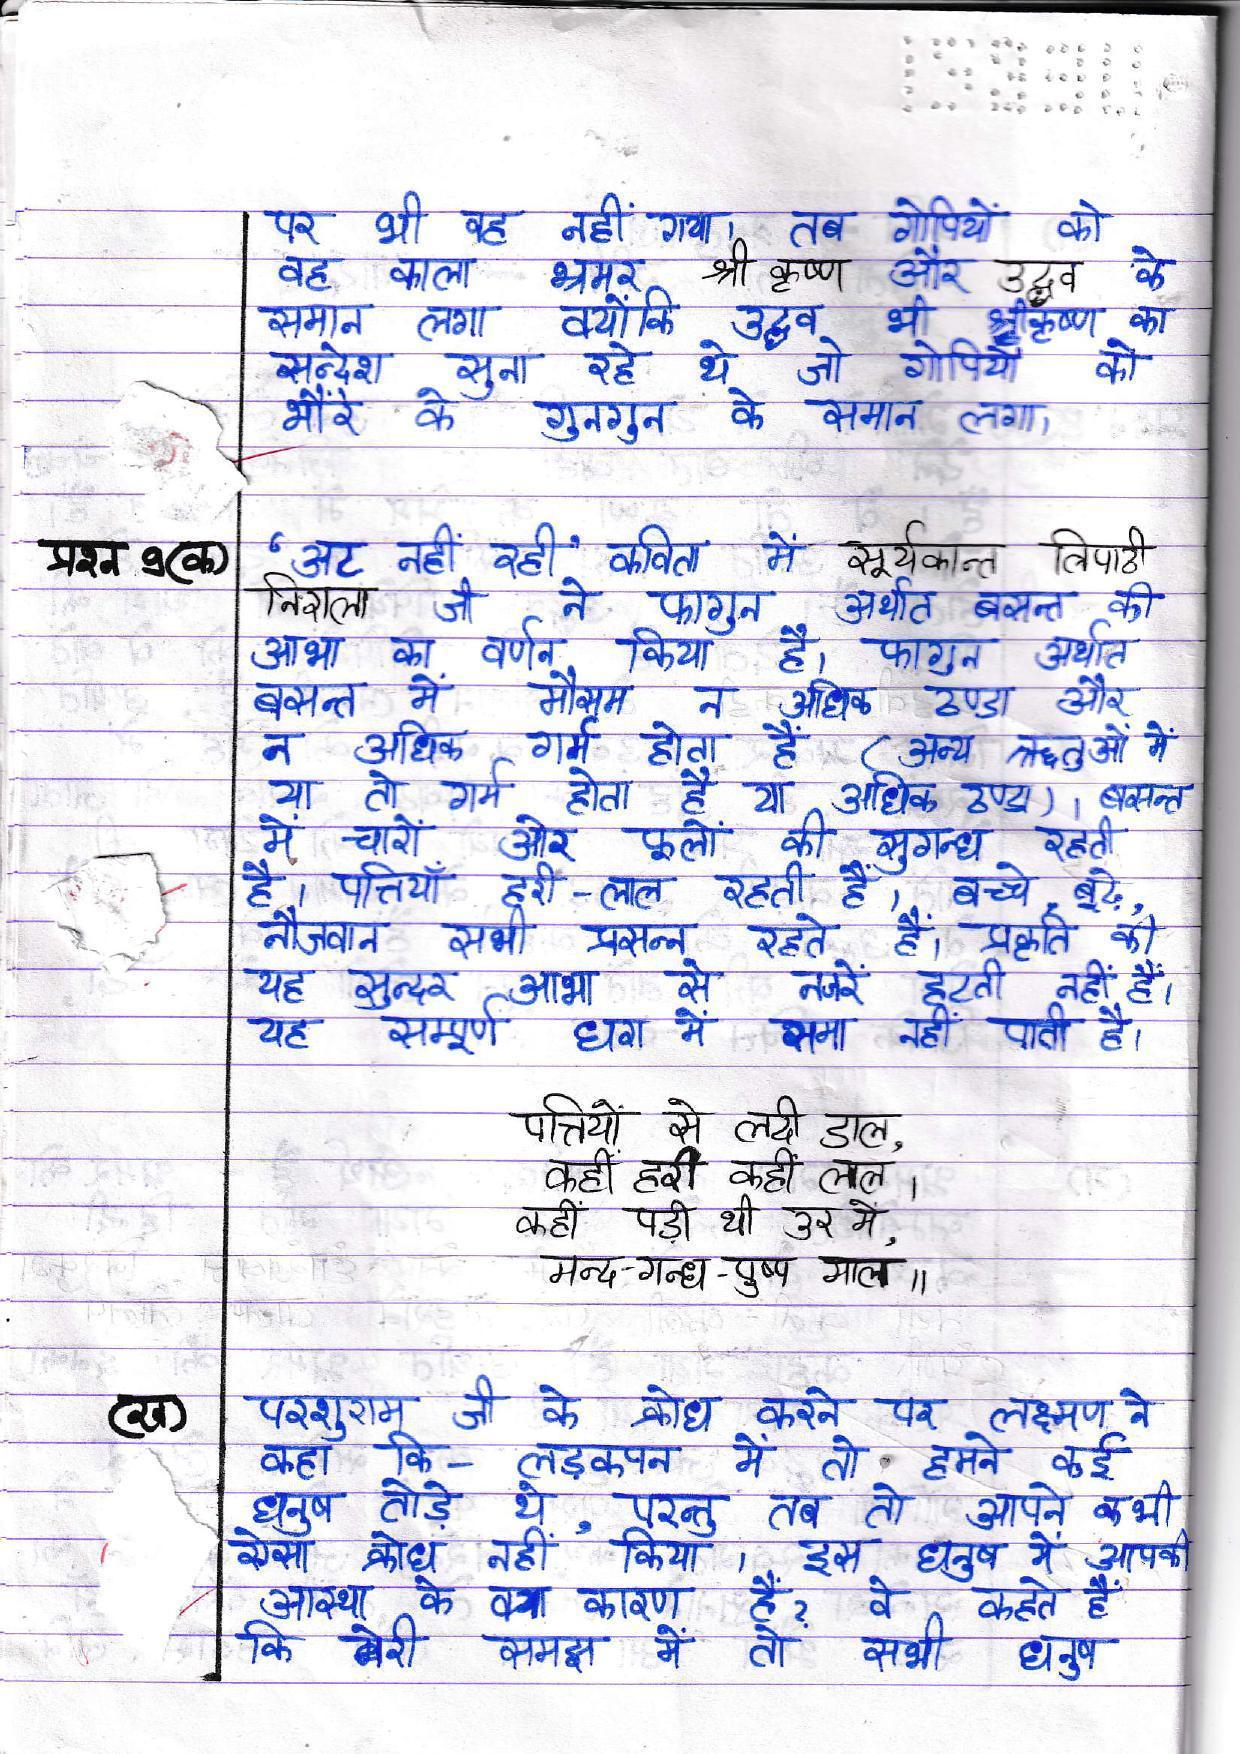 पर भी वह नहीं गया। तब गोपियों को
वह काला भ्रमर श्री कृष्ण और उद्धव के
समान लगा क्योंकि उद्धव भी श्रीकृष्ण का
सन्देश सुना रहे थे जो गोपियों को
भौंरे के गुनगुन के समान लगा।
प्रश्न 9(क) 'अट नहीं रही' कविता में सूर्यकान्त त्रिपाठी
निराला जी ने फागुन अर्थात बसन्त की
आभा का वर्णन किया है। फागुन अर्थात
बसन्त में मौसम न अधिक ठण्डा और
न अधिक गर्म होता हैं (अन्य ऋतुओं में
या तो गर्म होता है या अधिक ठण्डा)। बसन्त
में चारों ओर फूलों की सुगन्ध रहती
है। पत्तियाँ हरी-लाल रहती हैं। बच्चे, बूढ़े,
नौजवान सभी प्रसन्न रहते हैं। प्रकृति की
यह सुन्दर आभा से नजरें हटती नहीं हैं।
यह सम्पूर्ण धरा में समा नहीं पाती है।
पत्तियों से लदी डाल,
कहीं हरी कहीं लाल।
कहीं पड़ी थी उर में,
मन्द-गन्ध-पुष्प माल॥
(ख) परशुराम जी के क्रोध करने पर लक्ष्मण ने
कहा कि- लड़कपन में तो हमने कई
धनुष तोड़े थे, परन्तु तब तो आपने कभी
ऐसा क्रोध नहीं किया। इस धनुष में आपकी
आस्था के क्या कारण हैं? वे कहते हैं
कि मेरी समझ में तो सभी धनुष